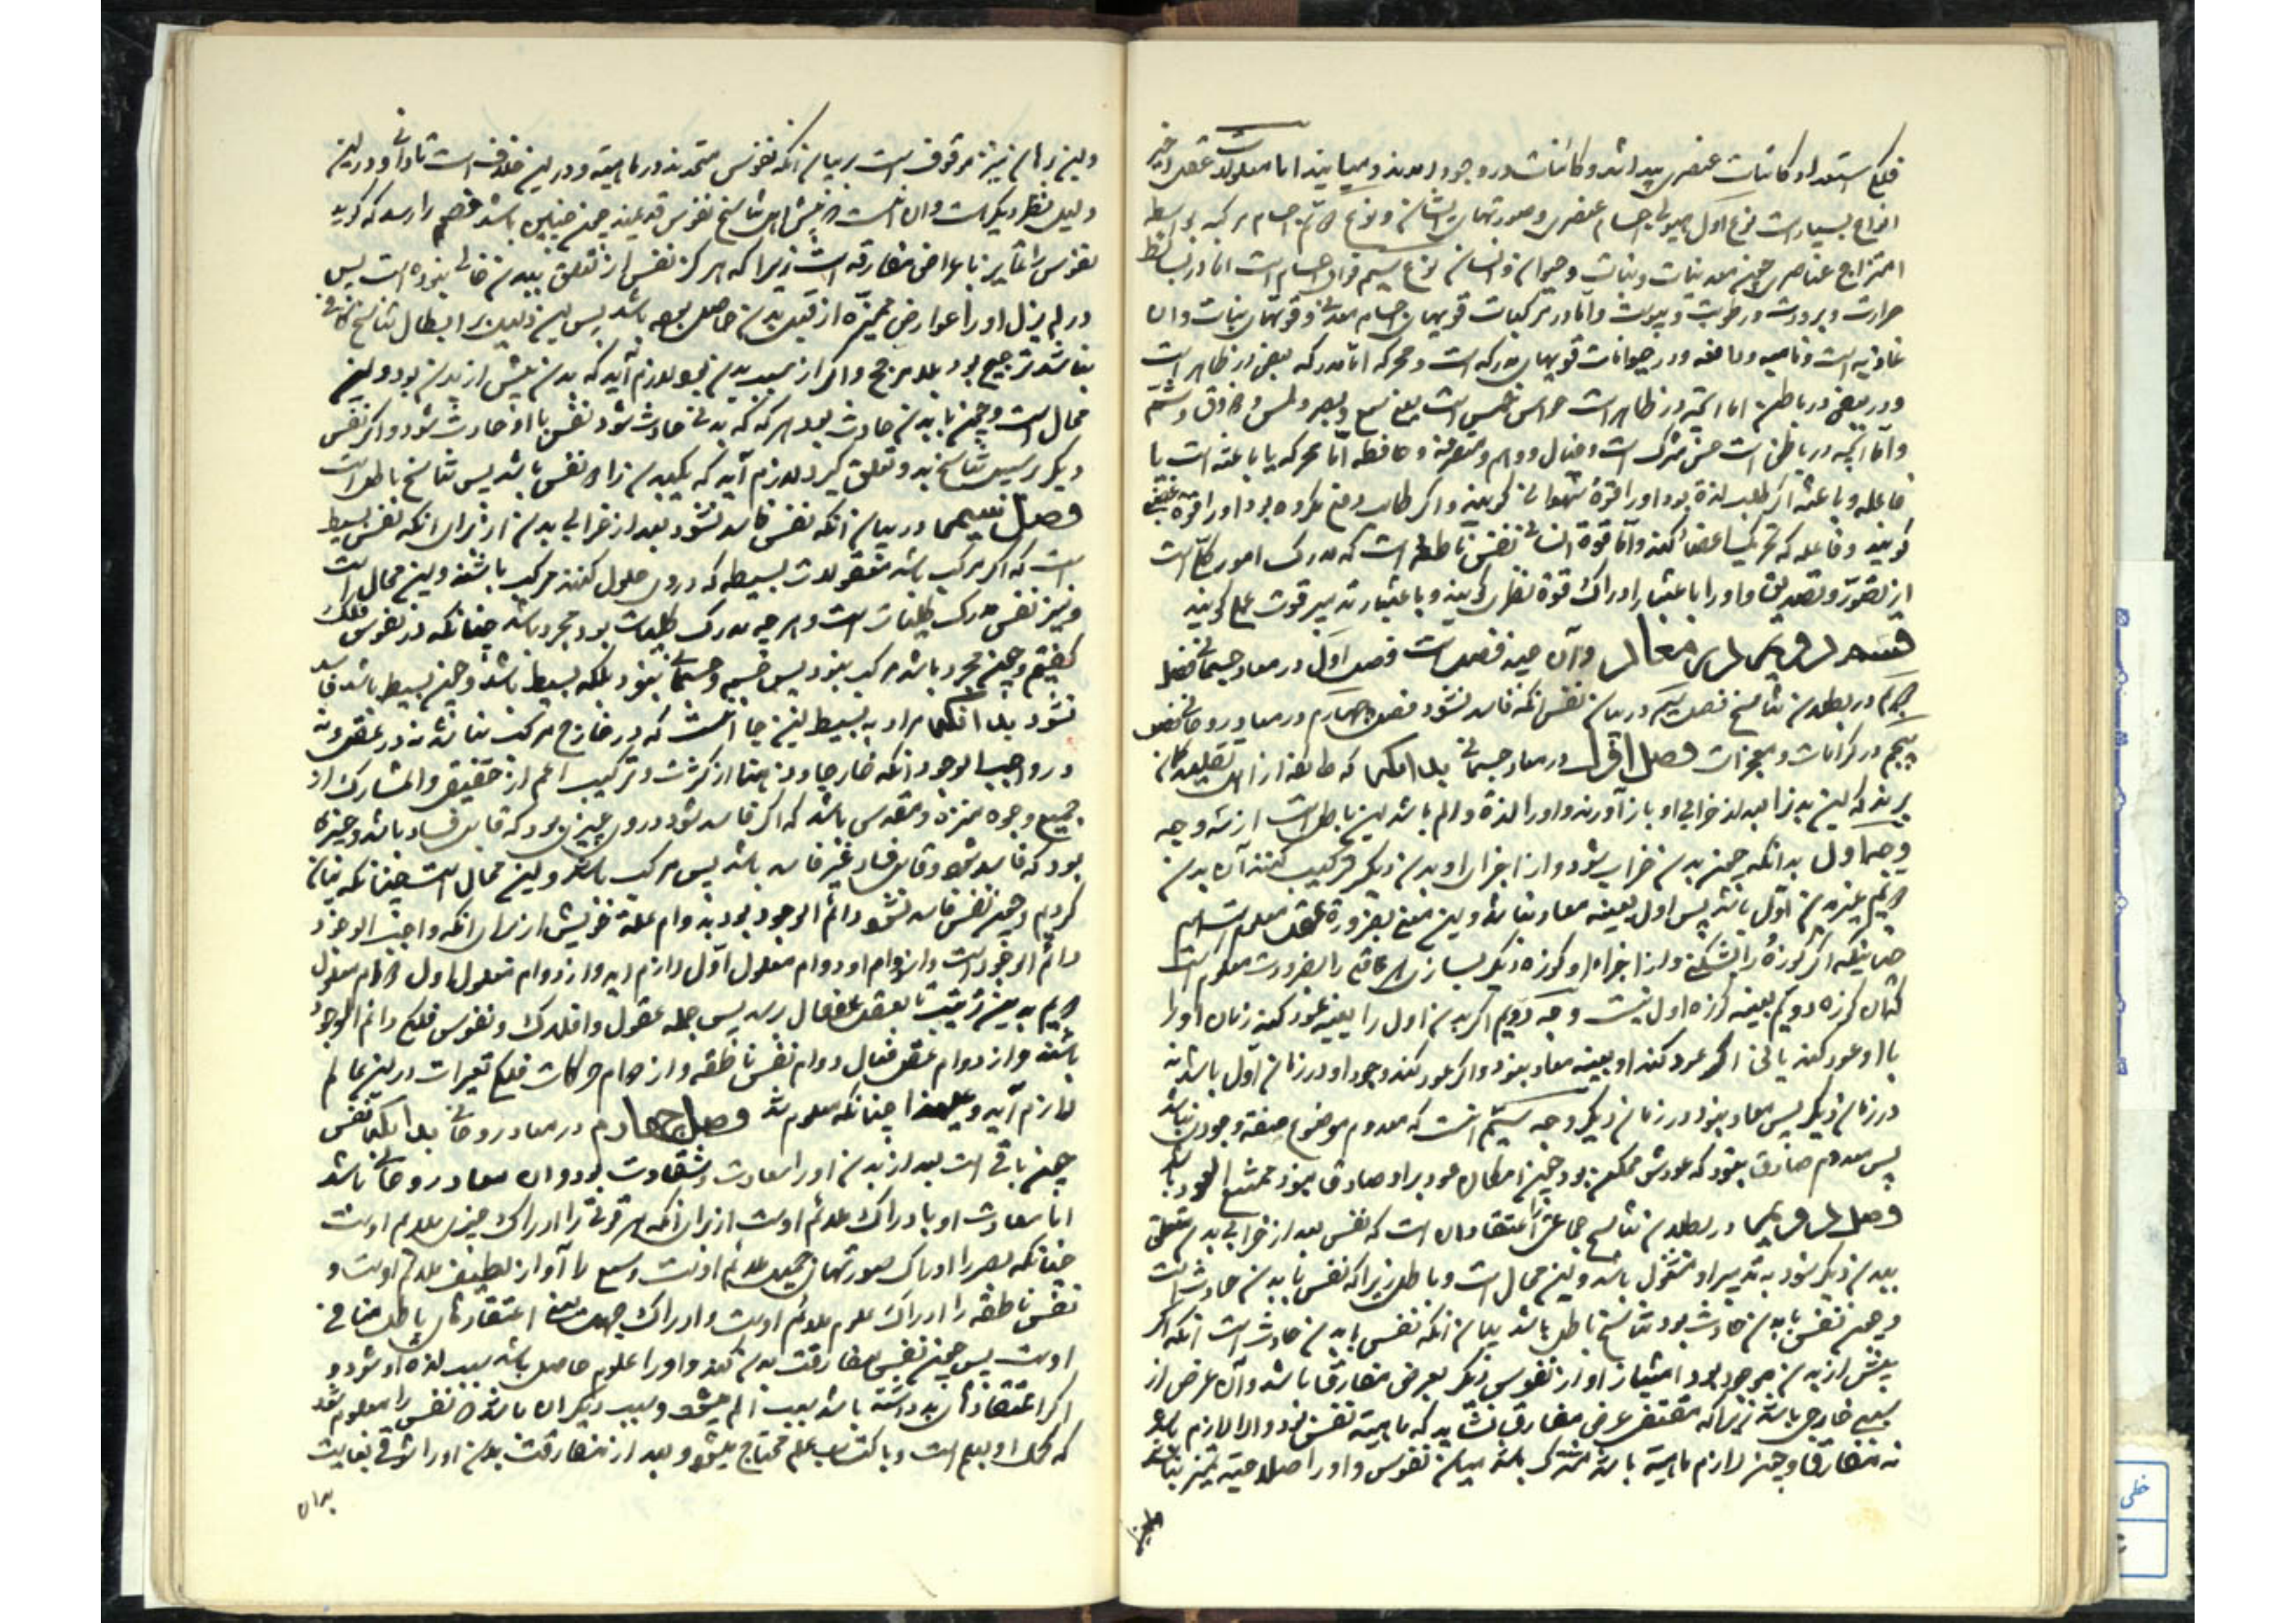 فلکی استعداد کائنات عنصری پیدا شد و کائنات در وجود آمدند و میآیند اما معلولات عقل اخیر
انواع بسیارست نوع اول هیولی اجسام عنصری و صورتهای ایشان و نوع دویم اجسام مرکبه بواسطه
امتزاج عناصر چون معدنیات و نبات و حیوان و انسان نوع سیم قوای اجسام است اما در بسائط
حرارت و برودت و رطوبت و یبوست و اما در ترکیبات قوتهای اجسام معدنی و قوتهای نبات و آن
غاذیه است و نامیه و دافعه و در حیوانات قوتهای مدرکه است و محرکه اما مدرکه بعضی در ظاهر است
و در بعضی در باطن اما آنچه در ظاهر است حواس خمس است یعنی سمع و بصر و لمس و ذوق و شم
و اما آنچه در باطن است حس مشترک است و خیال و وهم و متصرفه و حافظه اما محرکه یا باعثه است یا
فاعله و باعثه اگر طلب لذة بود او را قوة شهوانی گویند و اگر طالب دفع مکروه بود او را قوة غضبی
گویند و فاعله که تحریک اعضا کند و اما قوة انسانی نفس ناطقه است که مدرک امور کلی است
از تصور و تصدیق و او را باعتبار ادراک قوة نظری گویند و باعتبار تدبیر قوت عملی گویند
و آن پنج فصل است فصل اول در معاد جسمانی فصل
دویم در بطلان تناسخ فصل سیم در بیان نفس آنکه فاسد نشود فصل چهارم در معاد روحانی فصل
پنجم در کرامات و معجزات فصل اول در معاد جسمانی بدانکه که طائفه از اهل تقلید
برینند که این بدن را بعد از خرابی او باز آورند و او را لذة و الم باشد این باطل است از سه وجه
وجه اول بدانکه چون بدن خراب شود و از اجزای او بدن دیگر ترکیب کنند آن بدن
دویم غیر بدن اول باشد پس اول بعینه معاد نباشد و این معنی بضرورة عقل معلوم است
چنانکه اگر کوزۀ را بشکنی و از اجزاء او کوزه دیگر بسازی هر عاقلی را بضرورت معلوم است
کان کوزه دویم بعینه کوزه اول نیست وجه دویم اگر بدن اول را بعینه عود کند زمان او را
با او عود کند یا نی اگر عود نکند او بعینه معاد نبود و اگر عود کند وجود او در زمان اول باشد نه
در زمان دیگر پس معاد نبود در زمان دیگر وجه سیم آنست که معدوم موضوع صفة وجودی نباشد
پس معدوم صادق نبود که عودش ممکن بود چون امکان عود بر او صادق نبود ممتنع العود باشد
در بطلان تناسخ جماعتی را اعتقاد آن است که نفس بعد از خرابی بدن متعلق
ببدن دیگر شود به تدبیر او مشغول باشد و این محال است و باطل زیرا که نفس با بدن حادث است
و چون نفس با بدن حادث بود تناسخ باطل باشد بیان آنکه نفس با بدن حادث است آنکه اگر
پیش از بدن موجود بود امتیاز او از نفوس دیگر بعرض مفارق باشد و آن عرض از
سببی خارجی باشد زیرا که مقتضی عرض مفارق نشاید که ماهیة نفس بود و الا لازم باشد
نه مفارق و چون لازم ماهیة باشد مشترک باشد میان نفوس و او را صلاحیة تمیز نباشد
و این برهان نیز موقوف است بر بیان آنکه نفوس متحدند در ماهیة و در این خلاف است تا دانی و در این
دلیل نظر دیگرست و آن آنست که پیش اهل تناسخ نفوس قدیمند چون چنین باشد خصم را رسد که گوید
نفوس را تمایز باعراض مفارقه است زیرا که هرگز نفس از تعلق ببدن خالی نبوده است پس
در لم یزل او را عوارض ممیزه از قبل بدن حاصل بوده باشد پس این دلیل بر ابطال تناسخ کافی
نباشد ترجیح بود بلا مرجح و اگر از سبب بدن بود لازم آید که بدن پیش از بدن بود و این
محال است و چون با بدن حادث بود هرگه که بدنی حادث شود نفس با او حادث شود و اگر نفس
دیگر بر سبیل تناسخ بدو تعلق گیرد لازم آید که یکبدن را دو نفس باشد پس تناسخ باطل است
فصل سیم در بیان آنکه نفس فاسد نشود بعد از خرابی بدن از برای آنکه نفس بسیط
است که اگر مرکب باشد معقولات بسیطه که درو حلول کنند مرکب باشند و این محال است
و نیز نفس مدرک کلیات است و هر چه مدرک کلیات بود مجرد باشد چنانکه در نفوس فلک
گفتیم و چون مجرد باشد مرکب نبود پس جسم و جسمانی نبود بلکه بسیط باشد و چون بسیط باشد فاسد
نشود بدانکه مراد به بسیط اینجا آنست که در خارج مرکب نباشد نه در عقل و نه
در واجب الوجود آنکه خارجا و ذهنا از کثرت و ترکیب اعم از حقیقی و المشارک از
جمیع وجوه منزه و مقدس باشد که اگر فاسد شود درو چیزی بود که قابل فساد باشد و چیزی
بود که فاسد شود و قابل فساد غیر فاسد باشد پس مرکب باشد و این محال است چنانکه بیان
کردیم و چون نفس فاسد نشود دائم الوجود بود بدوام علة خویش از برای آنکه واجب الوجود
دائم الوجودست و از دوام او دوام معلول اول لازم آید و از دوام معلول اول دوام معلول
دویم بدین ترتیب تا بعقل فعال رسد پس جمله عقول و افلاک و نفوس فلکی دائم الوجود
باشند و از دوام عقل فعال دوام نفس ناطقه و از دوام حرکات فلکی تغیرات در این عالم
لازم آید و علی هذا چنانکه معلوم شد فصل چهارم در معاد روحانی بدانکه نفس
چون باقی است بعد از بدن او را سعادت و شقاوت بود و آن معاد روحانی باشد
اما سعادت او بادراک ملائم اوست از برای آنکه هر قوتی را ادراک چیزی ملایم اوست
چنانکه بصر را ادراک صورتهای جمیل ملائم اوست و سمع را آواز لطیف ملائم اوست و
نفس ناطقه را ادراک علوم ملائم اوست و ادراک جهل یعنی اعتقادهای باطل منافی
اوست پس چون نفس مفارقت بدن کند و او را علوم حاصل باشد سبب لذه او شود و
اگر اعتقادهای بد داشته باشد سبب الم شود و سبب دیگر آن باشد که نفس را معلوم شد
که کمال او بعلم است و باکتساب علم محتاج میشود و بعد از مفارقت بدن او را شوقی بغایت
بدان
خطی